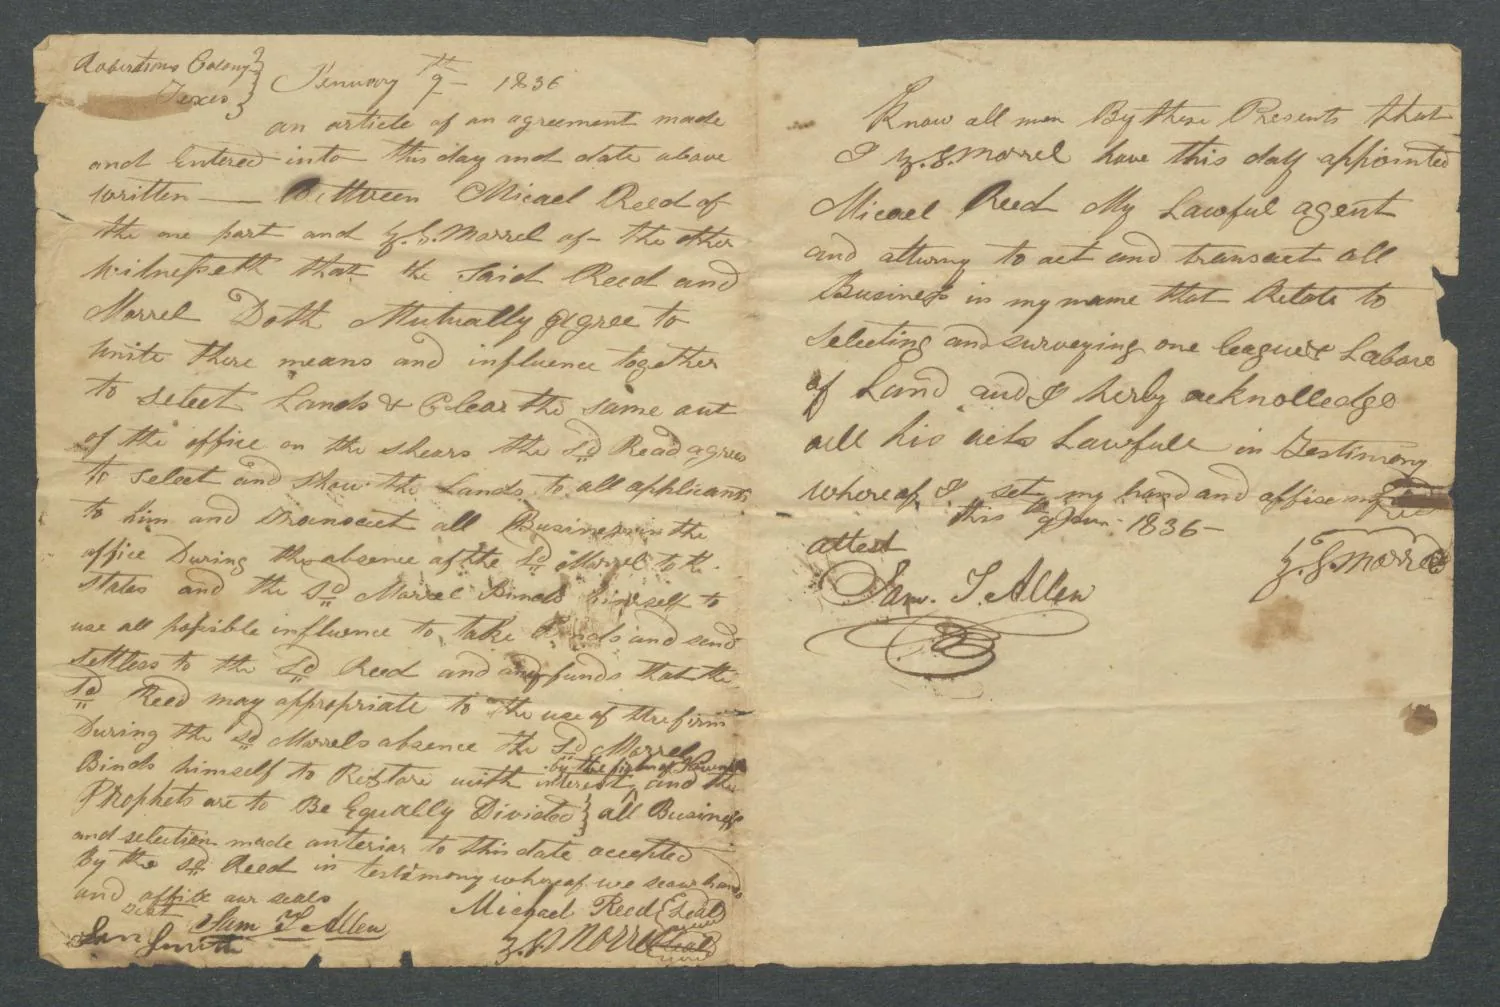 Robertsons Colony
Texas
Jenuary 9th 1836
an article of an agreement made
and Entered into this day and date above
written — Between Micael Reed of
the one part and Z. S. Morrel of the other
witnesseth that the Said Reed and
Morrel Doth Mutually agree to
unite there means and influence together
to select Lands & Clear the same out
of the office on the shears the Sd Read agrees
to select and show the Lands to all applicants
to him and transact all Business in the
office During the absence of the Sd Morrel to the
states and the Sd Morrel Binds himself to
use all possible influence to take and send
settlers to the Sd Reed and any funds that the
Sd Reed may appropriate to the use of the firm
During the Sd Morrels absence the Sd Morrel
Binds himself to Restore with interest by the first of and the
Prophets are to Be Equally Divided all Business
and selection made anterior to this date accepted
By the Sd Reed in testimony whereof we hands
and affix our seals
Michael Reed Seal
Z. S. Morrel Seal
Sam T Allen
Smith
Know all men By these Presents that
I Z. S. Morrel have this day appointed
Micael Reed My Lawful agent
and atturny to act and transact all
Business in my name that Relate to
Selecting and surveying one league & Labore
of Land and I herby acknolledge
all his acts Lawfull in Testimony
whereof I set my hand and affix my
this 9th Jan. 1836
attest
Z. S. Morrel
Sam. T. Allen